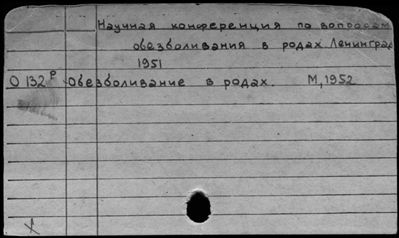 Научная конференция по вопросам
обезболивания в родах. Ленинград
1951
О 132 р Обезболивание в родах. М, 1952